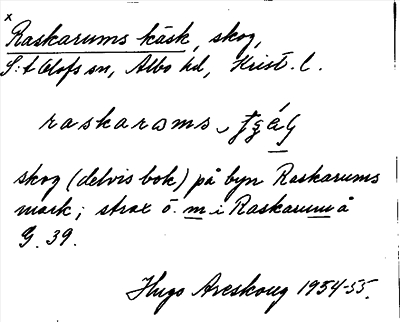 x
Raskarums käsk, skog,
S:t Olofs sn, Albo hd, Krist. l.
raskaroms
skog (delvis bok) på byn Raskarums
mark; strax ö. m i Raskarum å
G. 39.
Hugo Areskoug 1954-55.